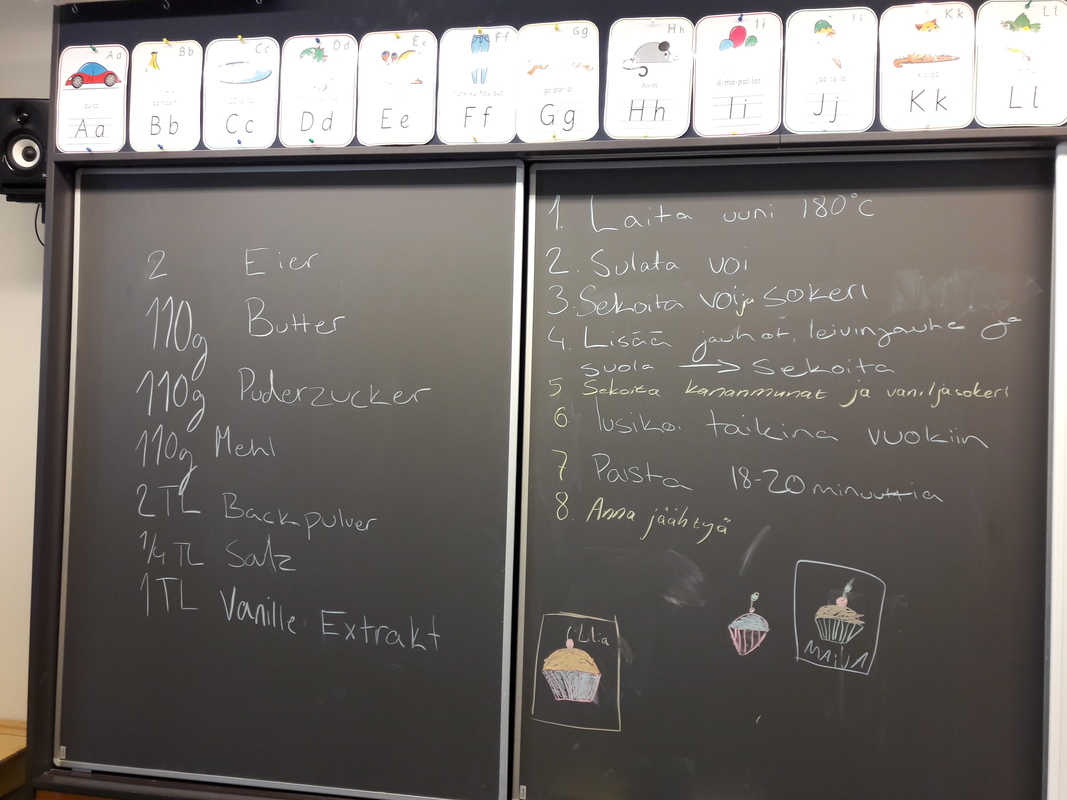 Aa
Bb
Cc
Dd
Ee
Ff
Gg
Hh
Ii
Kk
Ll
Aa
Bb
Cc
Dd
Ee
Ff
Gg
Hh
Ii
Jj
Kk
Ll
2 Eier
110g Butter
110g Puderzucker
110g Mehl
2 TL Backpulver
1/4 TL Salz
1 TL Vanille Extrakt
1. Laita uuni 180°C
2. Sulata voi
3. Sekoita voi ja sokeri
4. Lisää jauhot, leivinjauhe ja
suola → Sekoita
5. Sekoita kananmunat ja vaniljasokeri
6. lusikoi taikina vuokiin
7 Paista 18-20 minuuttia
8. Anna jäähtyä
Lilia